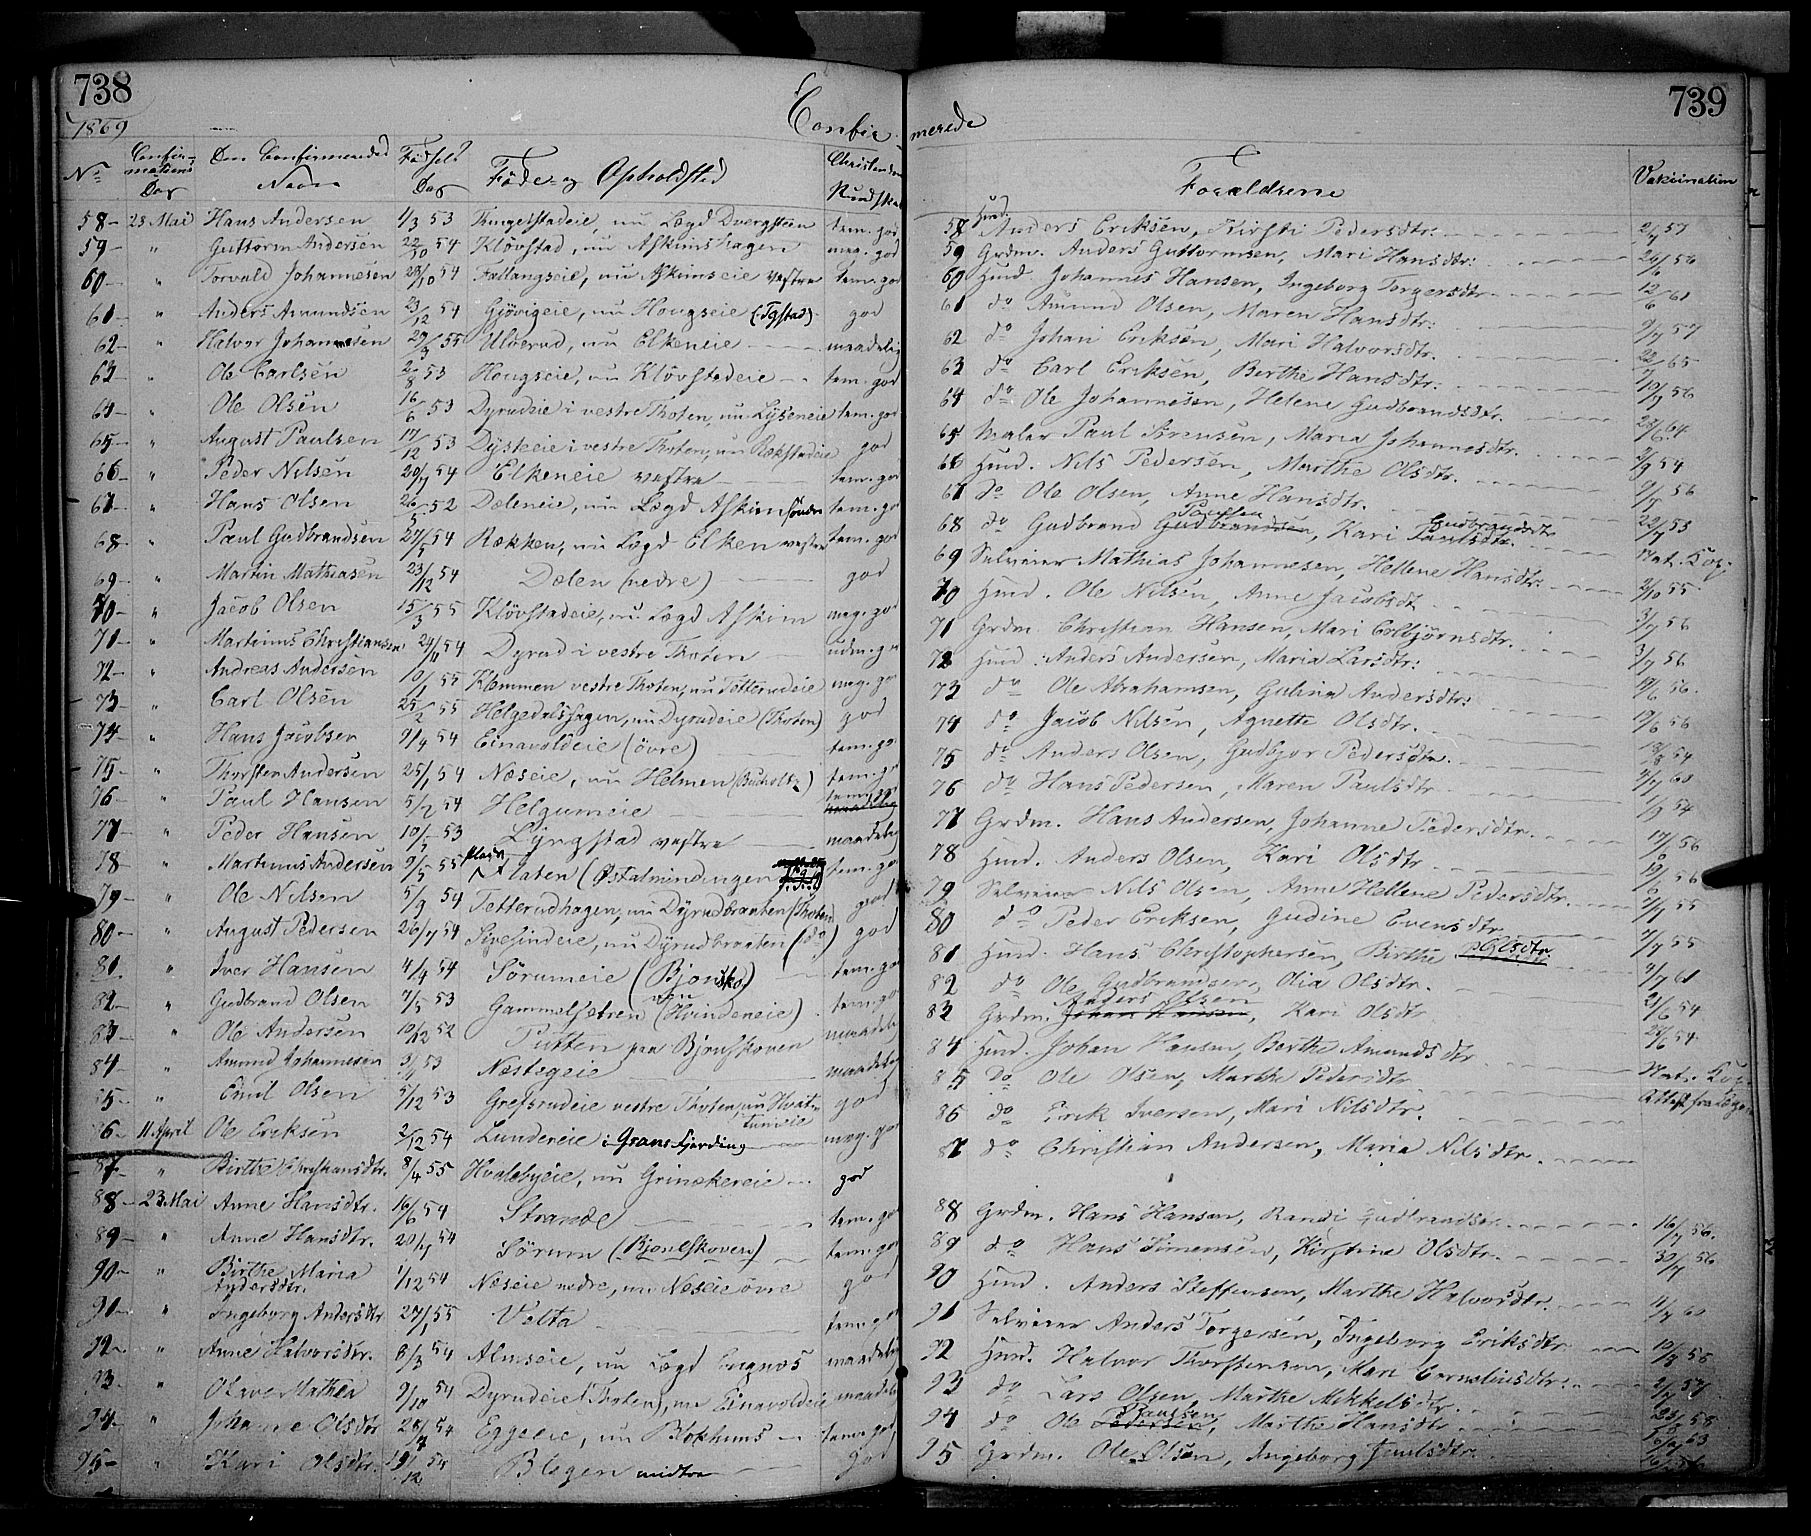 738
1869
Confir-
No
Confir-
mations
Dag
Den Confirmeredes
Navn
Fødsels
Dag
Føde- og Opholdsted
Christendoms
Kundskab
58 - 23 Mai Hans Andersen 1/3 53 Tingelstadeie, nu Lægd Dvergsteen tem. god
59 - " Guttorm Andersen 22/10 54 Klövstad, nu Askimshagen meg. god
60 - " Torvald Johannesen 28/10 54 Fallangseie, nu Askimseie vestre tem. god
61 - " Anders Amundsen 23/12 54 Gjövigeie, nu Hougseie (Tgstad) god
62 - " Halvor Johannesen 29/3 55 Ulverud, nu Elkeneie maadelig
63 - " Ole Carlsen 2/8 53 Hougseie, nu Klövstadeie tem. god
64 - " Ole Olsen 16/6 53 Dyrudeie i vestre Thoten, nu Lyseneie tem. god
65 - " August Paulsen 17/12 53 Dysteeie i vestre Thoten, nu Rækstadeie god
66 - " Peder Nilsen 20/7 54 Elkeneie vestre tem. god
67 - " Hans Olsen 26/5 52 Dæleneie, nu Lægd Askim søndre tem. god
68 - " Paul Gudbrandsen 27/5 54 Rækken, nu Lægd Elken vestre tem. god
69 - " Martin Mathiasen 23/12 54 Dælen (nedre) god
70 - " Jacob Olsen 15/3 55 Klövstadeie, nu Lægd Askim meg. god
71 - " Martinus Christiansen 24/11 54 Dyrud i vestre Thoten udm. g
72 - " Andreas Andersen 10/1 55 Kløemmen vestre Thoten, nu Tetterudeie meg. go
73 - " Carl Olsen 25/2 55 Helgedalshagen, nu Dyrudeie (Thoten) god
74 - " Hans Jacobsen 9/4 54 Einavoldeie (övre) tem. go
75 - " Thorsten Andersen 25/1 54 Næseie, nu Helmen tem. g
76 - " Paul Hansen 5/2 54 Helgumeie tem. god
77 - " Peder Hansen 10/7 53 Lyngstad vestre maadelig
78 - " Martinus Andersen 9/5 55 Platen (Østalmindingen tem. go
79 - " Ole Nilsen 5/9 54 Tetterudhagen, nu Dyrudbraaten (Thoten) god
80 - " August Pedersen 26/7 54 Sivesindeie, nu Dyrudbraaten (do) god
81 " Iver Hansen 4/4 54 Sörumeie (Bjonsko) tem. go
82 - " Gudbrand Olsen 7/5 53 Gammelsetren (Hvindeneie) tem. go
83 - " Ole Andersen 10/12 52 Putten paa Bjonskoven maadeli
84 - " Amund Johannesen 9/1 53 Næstegeie maadeli
85 - " Emil Olsen 5/12 53 Grefsrudeie vestre Thoten, nu Hvat-
tumeie god
86 - 11 April Ole Eriksen 2/12 54 Lundereie i Grans Fjerding meg. go
87 - " Birthe Christiansdtr. 8/4 55 Hvalebyeie, nu Grinakereie god
88 - 23 Mai Anne Hansdtr. 16/6 54 Strande tem. go
89 - " Anne Hansdtr. 20/7 54 Sörum (Bjonskoven) tem. go
90 - " Birthe Maria
Andersdtr. 1/12 54 Næseie nedre, nu Næseie övre go
91 - " Ingeborg Andersdtr 27/1 55 Velta tem. g
92 - " Anne Halvorsdtr. 6/3 54 Almseie, nu Lægd Engnæs maadeli
93 - " Olave Mathea 9/10 54 Dyrudeie (Thoten), nu Einavoldeie maadeli
94 - " Johanne Olsdtr 28/4 54 Eggeeie, nu Blokhuus temm. god
95 - " Kari Olsdtr. 19/12 54 Blegen midtre god
739
merede
Forældrene
Vakcination
58 Husm. Anders Eriksen, Kirsti Pedersdtr. 2/7 57
59 Grdm. Anders Guttormsen, Mari Hansdtr. 26/6 56
60 Husm. Johannes Hansen, Ingeborg Torgersdtr. 12/6 61
61 do Amund Olsen, Maren Hansdtr.
62 do Johan Eriksen, Mari Halvorsdtr. 9/7 57
63 do Carl Eriksen, Berthe Hansdtr. 22/7 65
64 do Ole Johannesen, Helene Gudbrandsdtr. 10/7 56
65 Maler Paul Sörensen, Maria Johannesdtr. 28/6 64
66 Husm. Nils Pedersen, Marthe Olsdtr. 2/9 54
67 do Ole Olsen, Anne Hansdtr. 9/7 56
68 do Gudbrand Gudbrandsen Paulsen, Kari Paulsdtr. Gudbrandsdtr 22/7 53
69 Selveier Mathias Johannesen, Hellene Hansdtr. Nat. Kop.
70 Husm. Ole Nilsen, Anne Jacobsdt 9/10 55
71 Grdm. Christian Hansen, Mari Colbjörnsdtr. 3/7 56
72 Husm. Anders Andersen, Maria Larsdtr. 3/7 56
73 do Ole Abrahamsen, Gulina Andersdtr. 19/6 56.
74 do Jacob Nilsen, Agnette Olsdtr. 19/6 56
75 do Anders Olsen, Gudbjor Pedersdtr. 18/8 54
76 do Hans Pedersen, Maren Paulsdtr 4/7 60
77 Grdm. Hans Andersen, Johanne Pedersdtr. 1/9 54
78 Husm. Anders Olsen, Kari Olsdtr 17/6 56
79 Selveier Nils Olsen, Anne Hellene Pedersdtr. 19/6 56
80 do Peder Eriksen, Gudine Evensdtr 7/7 55
81 Husm. Hans Christophersen, Birthe Olsdtr. 7/7 55
82 do Ole Gudbrandsen, Olia Olsdtr. 4/7 61
83 Grdm. Johan Hansen Anders Olsen, Kari Olsdtr 21/6 54
84 Husm. Johan Hansen, Berthe Amundsdtr 24/6 54
85 Do Ole Olsen, Marthe Pedersdtr Nat. Kop.
86 do Erik Iversen, Mari Nilsdtr. Attest fra Læge
87 do Christian Andersen, Maria Nilsdtr.
88 Grdm. Hans Hansen, Randi Gudbrandsdtr. 16/7 56.
89 do Hans Simensen, Kirstine Olsdtr. 30/7 56
90 Husm. Anders Steffensen, Marthe Halvorsdtr.
91 Selveier Anders Torgersen, Ingeborg Eriksdtr 4/7 60
92 Husm. Halvor Thorstensen, Mari Corneliusdtr. 10/8 55
93 do Lars Olsen, Marthe Mikkelsdtr. 2/7 57
94 do Ole Pedersen Paulsen, Marthe Hansdtr 23/8 58
95 Grdm. Ole Olsen, Ingeborg Paulsdtr.